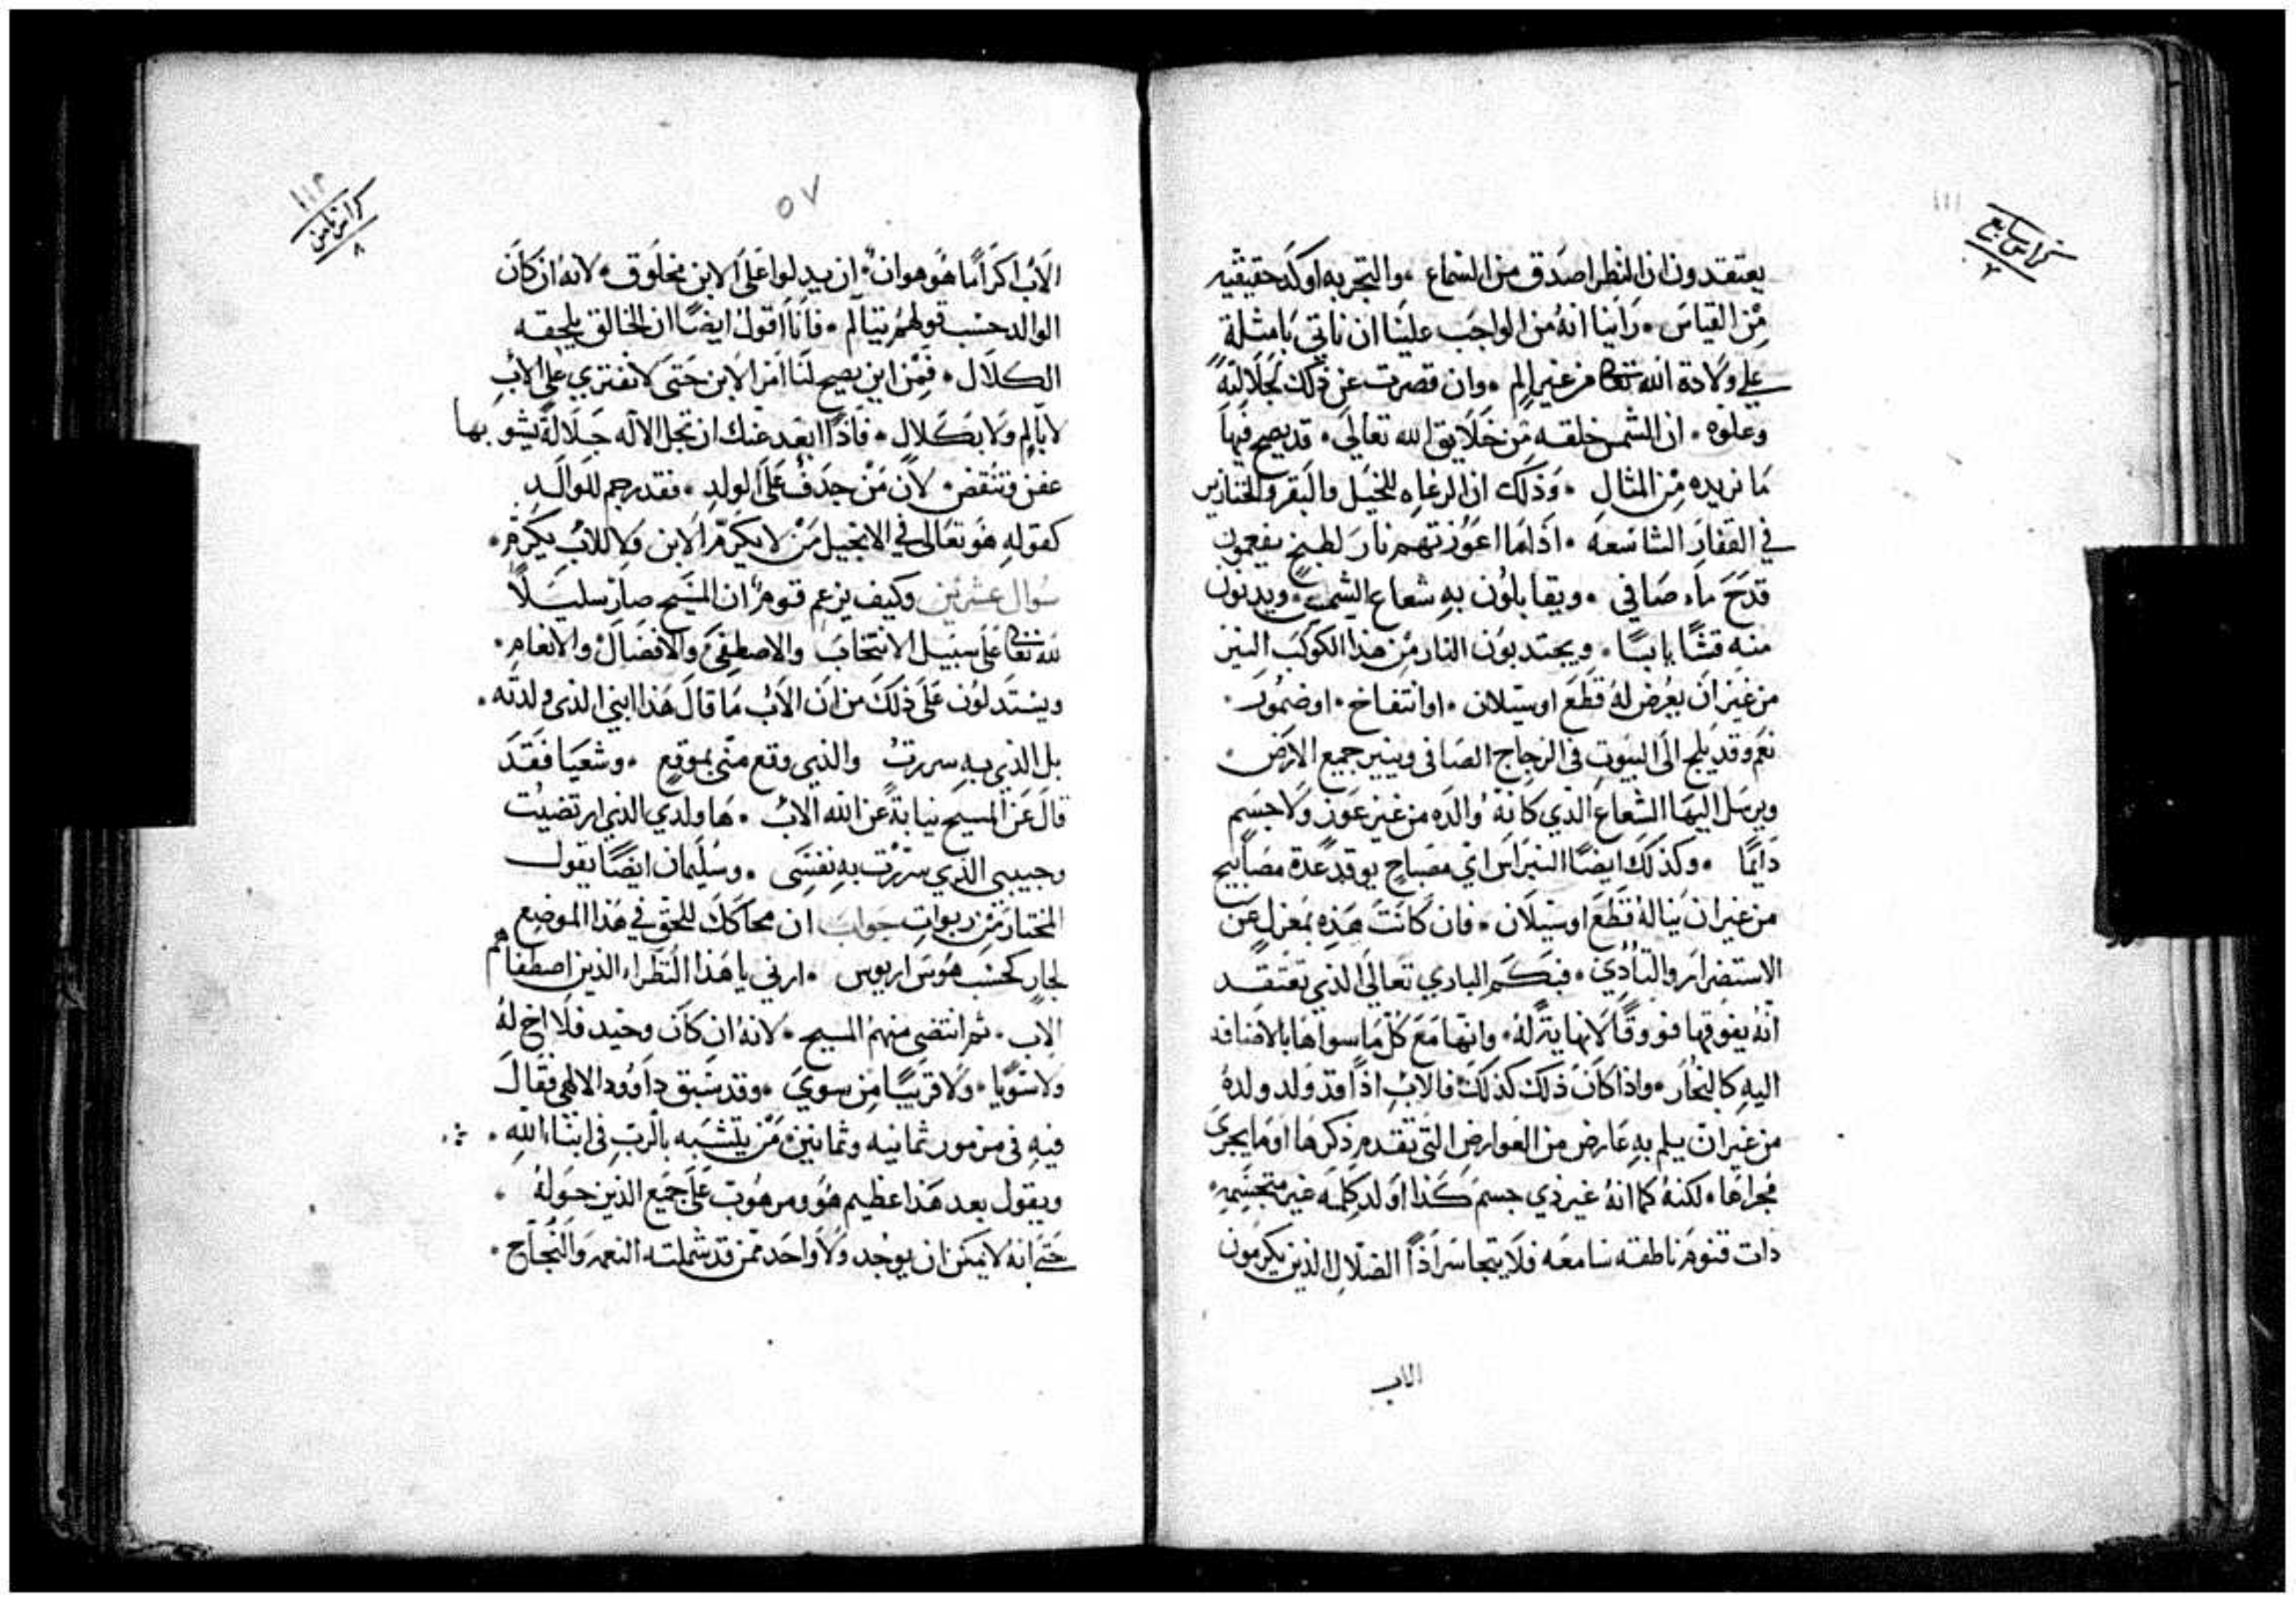 ١١١
كراس سابع
٢
يعتقدون ان النظر اصدق من السماع ، والتجربه اوكد حقيقيه
من القياس . راينا انه من الواجب علينا ان ناتي بامثلة
على ولادة الله تعالى من غير الم . وان قصرت عن ذلك لجلالته
وعلوه . ان الشمس خلقه من خلايق الله تعالى . قد يصح فيها
ما نريده من المثال . وذلك ان الرعاه للخيل والبقر والخنازير
في القفار الشاسعه . اذا ما اعوزتهم نار لطبخ يفعمون
قدح ماء صافي . ويقابلون به شعاع الشمس . ويدنون
منه قشا يابسا . ويجتدبون النار من هذا الكوكب النير
من غير ان يعرض له قطع او سيلان . او انتفاخ . او ضمور .
نعم وقد يلج الى البيوت في الزجاج الصافي وينير جميع الارض
ويرسل اليها الشعاع الذي كانه والده من غير عوز ولا جسم
دايما . وكذلك ايضا النبراس اي مصباح يوقد عدة مصابيح
من غير ان يناله قطع او سيلان . فان كانت هذه بمعزل عن
الاستضرار والتادي . فبكم الباري تعالى الذي تعتقد
انه يفوقها فووقا لا نهاية له . وانها مع كل ما سواها بالاضافه
اليه كالبخار . واذا كان ذلك كذلك فالاب اذا قد ولد ولده
من غير ان يلم به عارض من العوارض التي تقدم ذكرها او ما يجري
مجراها . لكنه كما انه غير ذي جسم كذا اولد كلمه غير متجسمه .
ذات قنوم ناطقه سامعه فلا يتجاسر اذا الضلال الذين يكرمون
الاب
١١٢
كراس ثامن
٨
٥٧
الاب اكراما هو هوان . ان يدلوا على الابن مخلوق . لانه ان كان
الوالد حسب قولهم يتالم . فانا اقول ايضا ان الخالق يلحقه
الكلال . فمن اين يصح لنا امر الابن حتى لا نفتري على الاب
لا بالم ولا بكلال . فاذا ابعد عنك ان تجل الاله جلالة يشوبها
عفن وتنقض . لان من جدف على الولد . فقد رجم للوالد
كقوله هو تعالى في الانجيل من لا يكرم الابن ولا للاب يكرم .
سوال عشرين وكيف يزعم قوم ان المسيح صار سليلا
لله تعالى على سبيل الانتخاب والاصطفى والافضال والانعام .
ويستدلون على ذلك من ان الاب ما قال هذا ابني الذي ولدته .
بل الذي به سررت والذي وقع مني بموقع . وشعيا فقد
قال عن المسيح نيابة عن الله الاب . ها ولدي الذي ارتضيت
وحبيبي الذي سررت به نفسي . وسليمان ايضا يقول
المختار من ربوات جواب ان محاكك للحق في هذا الموضع
لجار كحسب هوس اريوس . ارني يا هذا النظراء الذين اصطفاهم
الاب . ثم انتضى منهم المسيح . لانه ان كان وحيد فلا اخ له
ولا سويا . ولا قريبا من سوي . وقد سبق داوود الالهي فقال
فيه في مزمور ثمانيه وثمانين من يتشبه بالرب في ابناء الله .
ويقول بعد هذا عظيم هو ومرهوب على جميع الذين حوله .
حتى انه لا يمكن ان يوجد ولا واحد ممن قد شملته النعمه والنجاح .